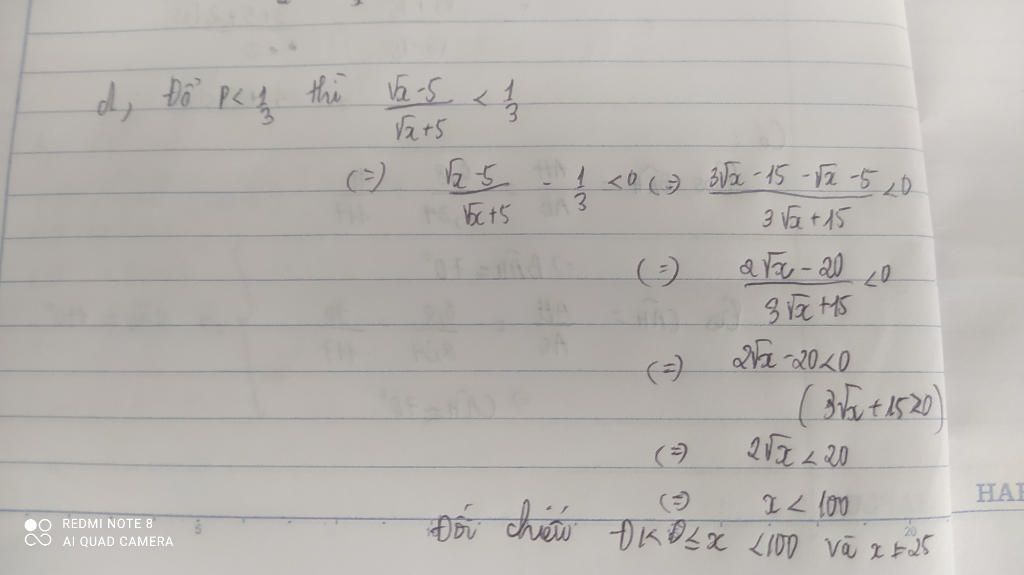 d, Để P < 1/3 thì (√x - 5)/(√x + 5) < 1/3
(=) (√x - 5)/(√x + 5) - 1/3 < 0 (=) (3√x - 15 - √x - 5)/(3√x + 15) < 0
(=) (2√x - 20)/(3√x + 15) < 0
(=) 2√x - 20 < 0
(3√x + 15 > 0)
(=) 2√x < 20
(=) x < 100
Đối chiếu ĐK 0 ≤ x < 100 và x ≠ 25
HAR
REDMI NOTE 8
AI QUAD CAMERA